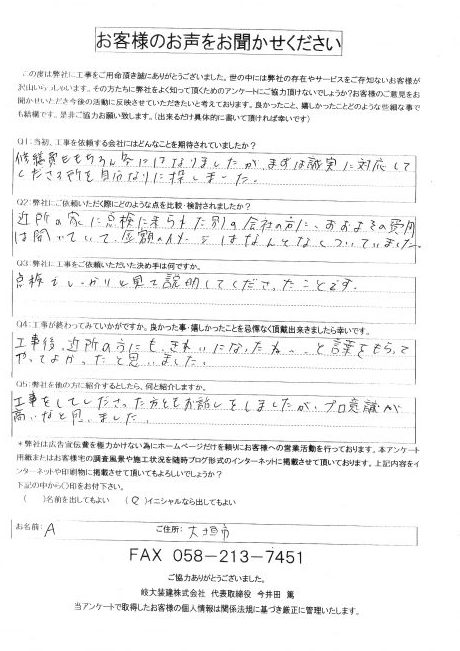 お客様のお声をお聞かせください
この度は弊社に工事をご用命頂き誠にありがとうございました。世の中には弊社の存在やサービスをご存知ないお客様が
沢山いらっしゃいます。その方たちに弊社をよく知って頂くためのアンケートにご協力頂けないでしょうか?お客様のご意見をお
聞かせいただき今後の活動に反映させていただきたいと考えております。良かったこと、嬉しかったことどのような些細な事で
も結構です。是非ご協力お願い致します。(出来るだけ具体的に書いて頂ければ幸いです)
Q1:当初、工事を依頼する会社にはどんなことを期待されていましたか?
修繕費ももちろん気にはなりましたが、まずは誠実に対応して
くださる所を自分なりに探しました。
Q2:弊社にご依頼いただく際にどのような点を比較・検討されましたか?
近所の家に点検に来られた別の会社の方に、おおよその費用
は聞いていて、金額のイメージはなんとなくついていました。
Q3:弊社に工事をご依頼いただいた決め手は何ですか。
点検をしっかりと見て説明してくださったことです。
Q4:工事が終わってみていかがですか。良かった事・嬉しかったことを忌憚なく頂戴出来きましたら幸いです。
工事後、近所の方にも、きれいになったね、、と言葉をもらって
やってよかったと思いました。
Q5:弊社を他の方に紹介するとしたら、何と紹介しますか。
工事をしてくださった方ともお話しをしましたが、プロ意識が
高いなと思いました。
*弊社は広告宣伝費を極力かけない為にホームページだけを頼りにお客様への営業活動を行っております。本アンケート
用紙またはお客様宅の調査風景や施工状況を随時ブログ形式のインターネットに掲載させて頂いております。上記内容をイ
ンターネットや印刷物に掲載させて頂いてもよろしいでしょうか?
下記の中から○印をお付下さい。
( )名前を出してもよい (○)イニシャルなら出してもよい
お名前: A ご住所: 大垣市
FAX 058-213-7451
ご協力ありがとうございました。
岐大装建株式会社 代表取締役 今井田 篤
当アンケートで取得したお客様の個人情報は関係法規に基づき厳正に管理いたします。